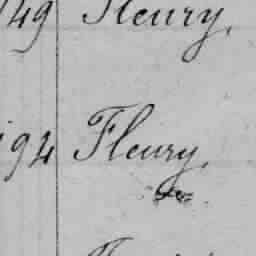 149 Fleury.
194 Fleury.